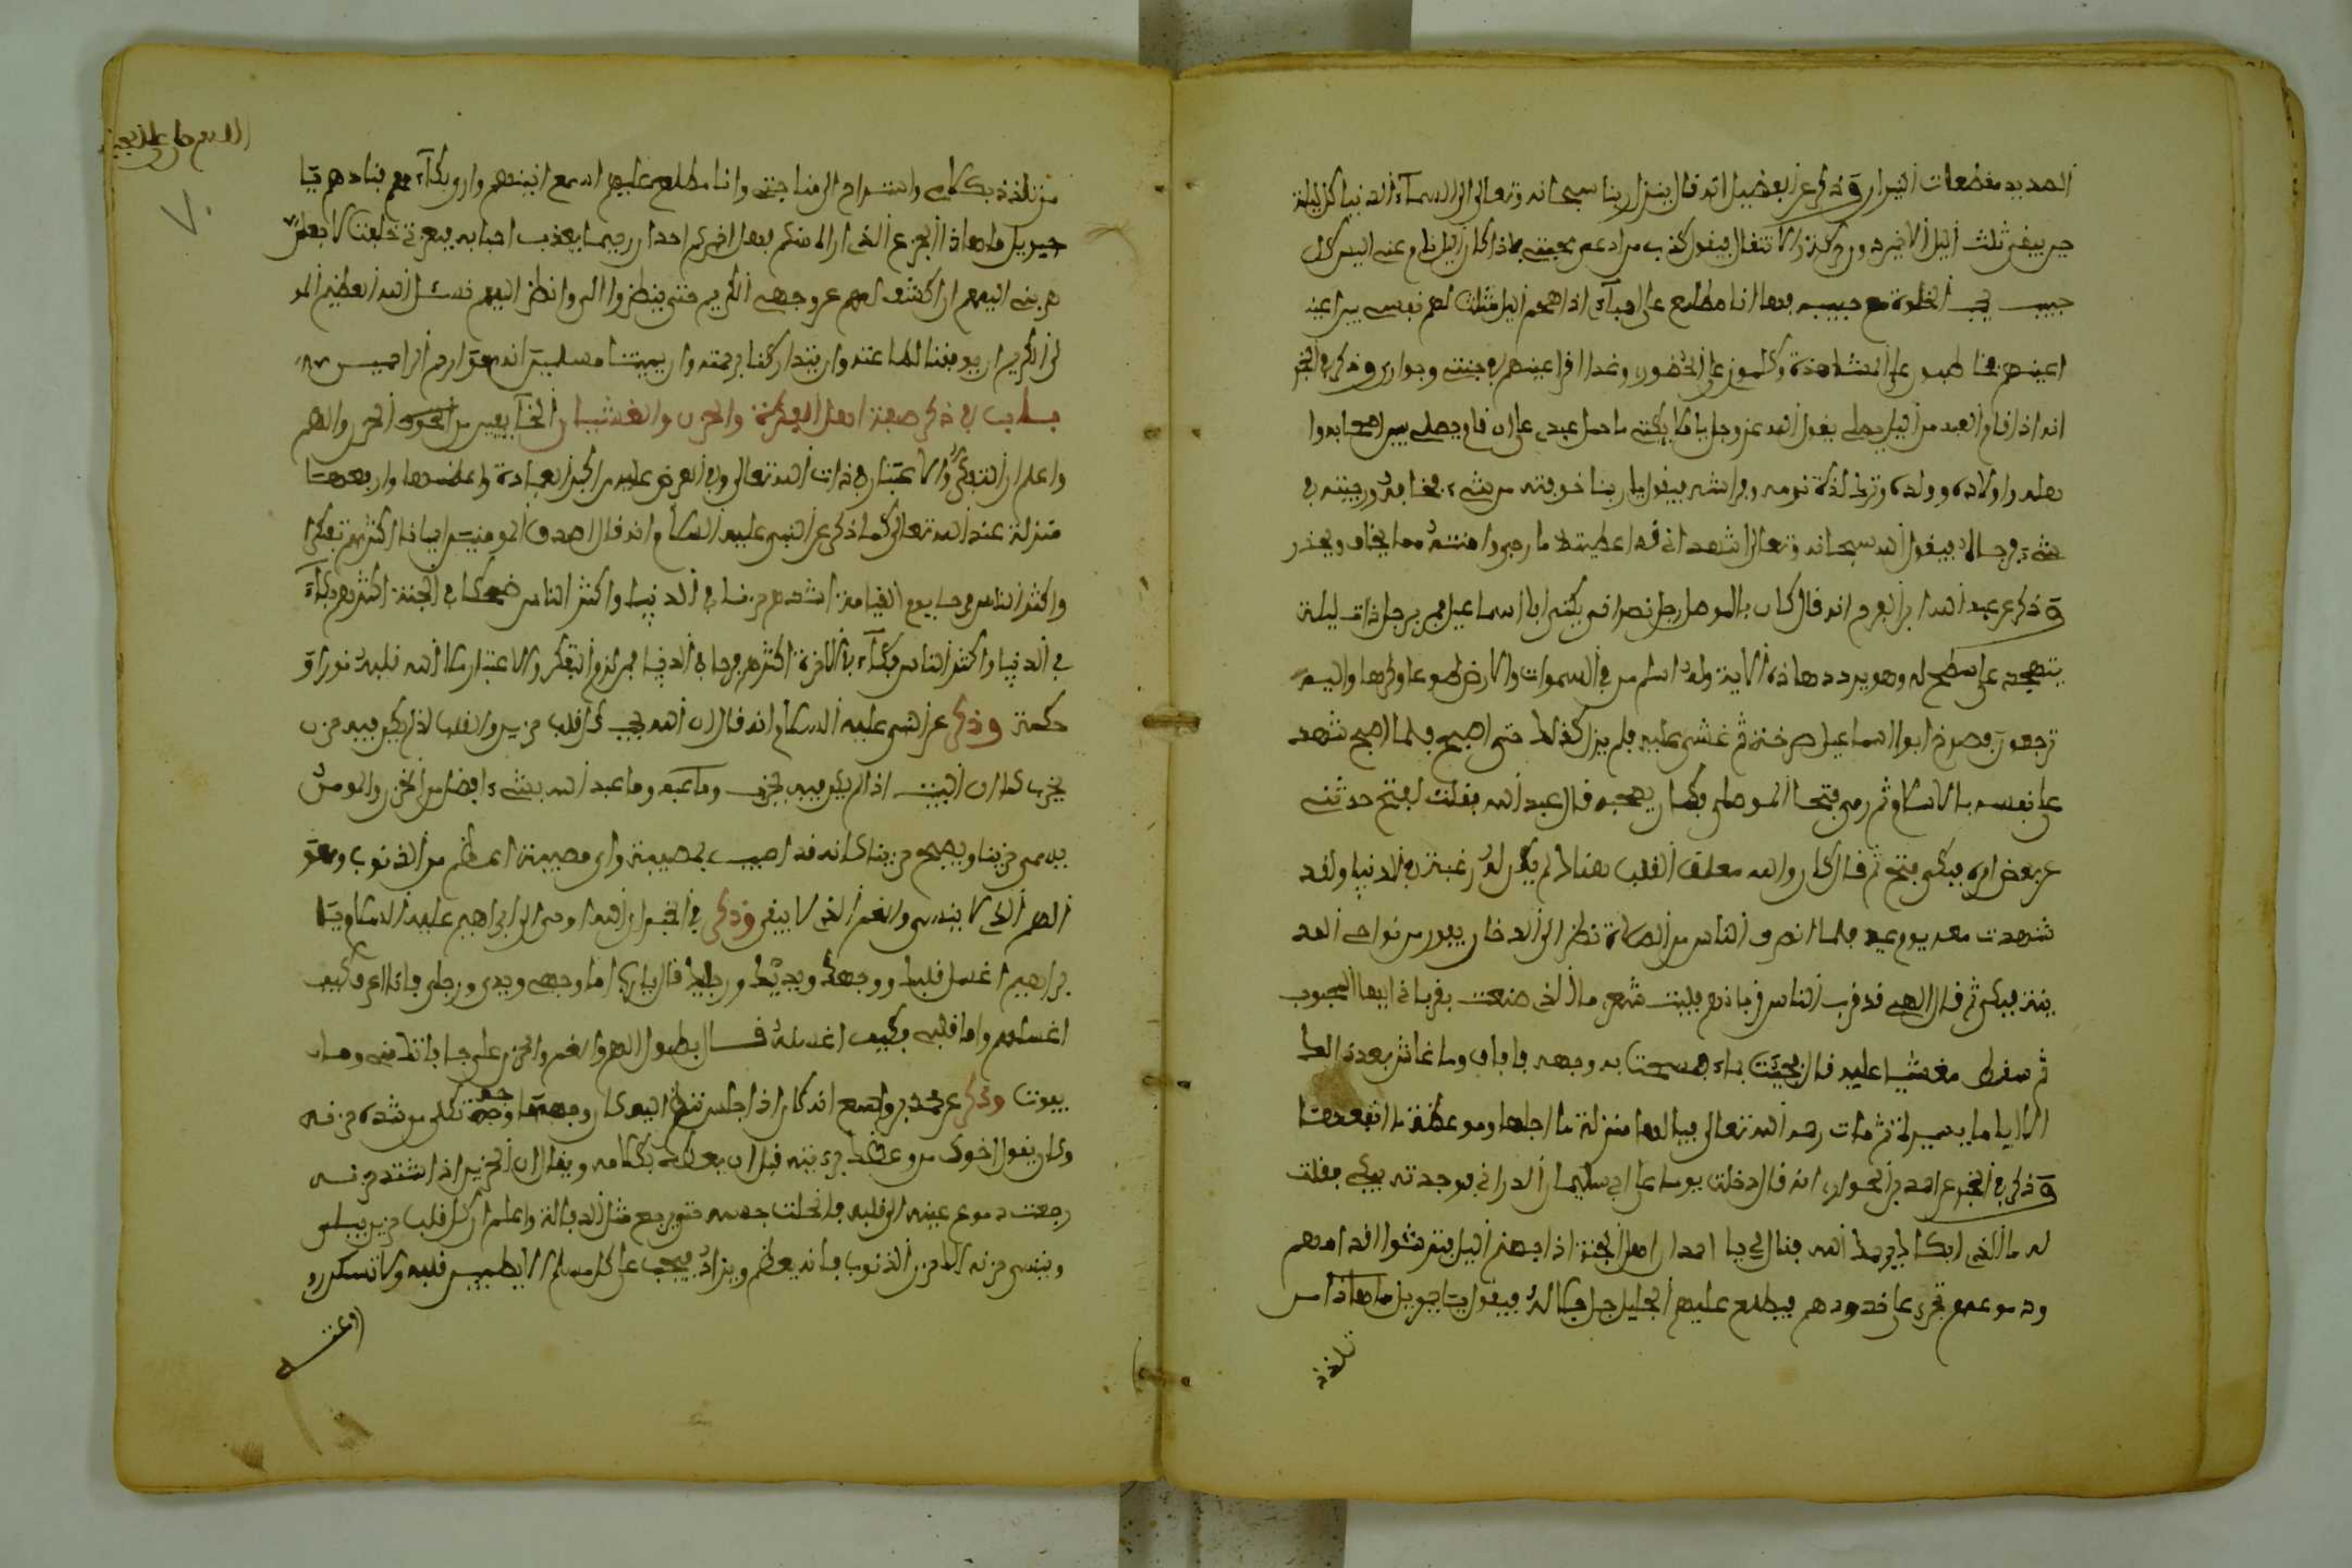 الحديد مقطعات النيران وذكر عن الفضيل انه قال ينزل ربنا سبحانه وتعالى الى السماء الدنيا كل ليلة
حين يبقى ثلث اليل الاخير دون حركة ولا انتقال فيقول كذب من ادعى محبتي فاذا كان اليل نام عني اليس كل
حبيب يحب الخلوة مع حبيبه فها انا مطلع على احبآءي اذا هجم اليل مثلت لهم نفسي بين اعينـ
اعينهم فخاطبوني على المشاهدة وكلموني على الحضور وغدا اقر اعينهم في جنتي وجواري وذكر في الخبر
انه اذا قام العبد من اليل يصلي يقول الله عز وجل يا ملايكتي ما حمل عبدي على ان قام يصلي بين اصحابه وا
هله واولاده وولده وترك لذة نومه وفراشه فيقولون ربنا خوفته من شيء فخافه ورجيته في
شيء فرجاه فيقول الله سبحانه وتعالى اشهد اني قد اعطيته ما رجى وامنته مما يخاف ويحذر
وذكر عن عبد الله ابن الفرج انه قال كان بالموصل رجل نصراني يكنى ابا اسماعيل فمر برجل ذات ليلة
يتهجد على سطح له وهو يردد هاذه الاية وله اسلم من في السموات والارض طوعا وكرها واليه
ترجعون فصرخ ابو اسماعيل صرخة ثم غشي عليه فلم يزل كذلك حتى اصبح فلما اصبح شهد
على نفسه بالاسلام ثم رمى فتحا الموصلي فكان يصحبه قال عبد الله فقلت لفتح حدثني
عن بعض امره فبكى فتح ثم قال كان والله معلق القلب هناك لم يكن له رغبة في الدنيا ولقد
شهدت معه يوم عيد فلما انصرف الناس من الصلاة نظر الى الدخان يفور من نواحي المد
ينة فبكى ثم قال الهي قد قرب الناس قربانهم فليت شعري ما الذي صنعت بقرباني ايها المحبوب
ثم سقط مغشيا عليه قال فجيئت بماء فمسحت به وجهه فافاق وما عاش بعد ذالك
الا اياما يسيرة ثم مات رحمه الله تعالى فيا لها منزلة ما اجلها وموعظة ما انفعها
وذكر في الخبر عن احمد بن الحواري انه قال دخلت يوما على ابي سليمان الداراني فوجدته يبكي فقلت
له ما الذي ابكاك يرحمك الله فقال لي يا احمد ان اهل الجنة اذا جهنم اليل افترشوا اقدامهم
ودموعهم تجري على خدودهم فيطلع عليهم الجليل جل جلاله فيقول يا جبريل ما هاذا من
تلذذ
من تلذذ بكلامي واستراح الى مناجتي وانا مطلع عليهم اسمع انينهم وارى بكآءهم فنادهم يا
جبريل ما هاذا الجزع الذي ارى منكم فهل اخبركم احدا ان حبيبا يعذب احبابه فبعزتي حلفت لاجعلن
هديتي اليهم ان اكشف لهم عن وجهي الكريم حتى ينظروا الي وانظر اليهم نسئل الله العظيم المو
لى الكريم ان يوفقنا لطاعته وان يتداركنا برحمته وان يميتنا مسلمين انه هو ارحم الراحمين
باب في ذكر صفة اهل الفكرة والحزن والغشيان الخآئفين من اخوة الحزن والهم
واعلم ان التفكر والاعتبار في ذات الله تعالى وفي العرض عليه من اكبر العبادة واعظمها وارفعها
منزلة عند الله تعالى كما ذكر عن النبي عليه السلام انه قال اصدق المومنين ايمانا اكثرهم تفكرا
واكثر الناس فرحا يوم القيامة اشدهم حزنا في الدنيا واكثر الناس ضحكا في الجنة اكثرهم بكآء
في الدنيا واكثر الناس بكآء في الاخرة اكثرهم فرحا في الدنيا فمن لزم التفكر والاعتبار ملا الله قلبه نورا و
حكمة وذكر عن النبي عليه السلام انه قال ان الله يحب كل قلب حزين والقلب اذا لم يكن فيه حزن
يخرب كما ان البيت اذا لم يكن فيه يخرب وما عبد الله بشيء افضل من الحزن والمومن
يمسي حزينا ويصبح حزينا كانه قد اصيب بمصيبة واي مصيبة اعظم من الذنوب وهو
الهم الذي لا ينسى والغم الذي لا يبقى وذكر في الخبر ان الله اوحى الى ابراهيم عليه السلام يا
براهيم اغسل قلبك ووجهك ويديك ورجليك قال يا رب اما وجهي ويدي ورجلي فانا اعرف كيف
اغسلهم واما قلبي فكيف اغسله قال بطول الهم والغم والحزن على ما فاتك مني وما
يفوت وذكر عن محمد بن واسع انه كان اذا جلس تنظر اليه كان وجهه وجه ثكلى من شدة حزنه
وكان يقول اخوك من وعظك برؤيته قبل ان يعظك بكلامه ويقال ان الحزين اذا اشتد حزنه
رجعت دموع عينه الى قلبه فانحلت جسمه حتى يرجع مثل الذبالة واعلم ان كل قلب حزين يسلو
وينسى حزنه الا حزن الذنوب فانه يعظم ويزاد فيجب على كل مسلم الا يطمين قلبه ولا تسكن رو
روعته